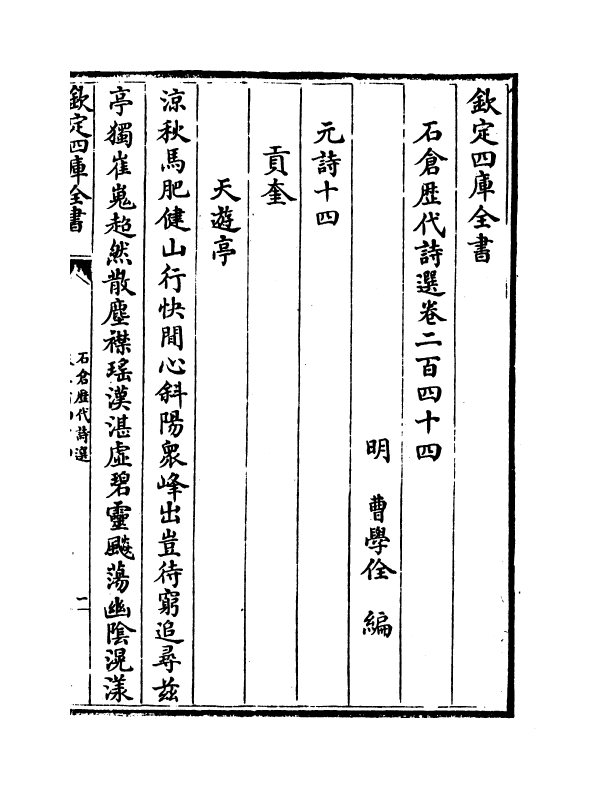 欽定四庫全書
石倉歴代詩選卷二百四十四
明 曹學佺 編
元詩十四
貢奎
天遊亭
涼秋馬肥健山行快閒心斜陽衆峰出豈待窮追尋兹
亭獨崔嵬超然散塵襟瑤漢湛虛碧靈飈蕩幽陰滉漾
欽定四庫全書
石倉歴代詩選